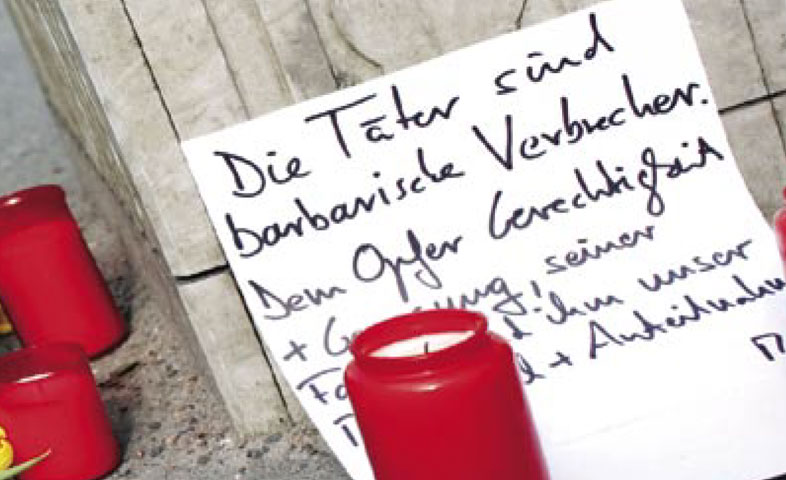 Die Täter sind
barbarische Verbrecher.
Dem Opfer Gerechtigkeit
+ seiner
ihm unser
+ Anteilnahme